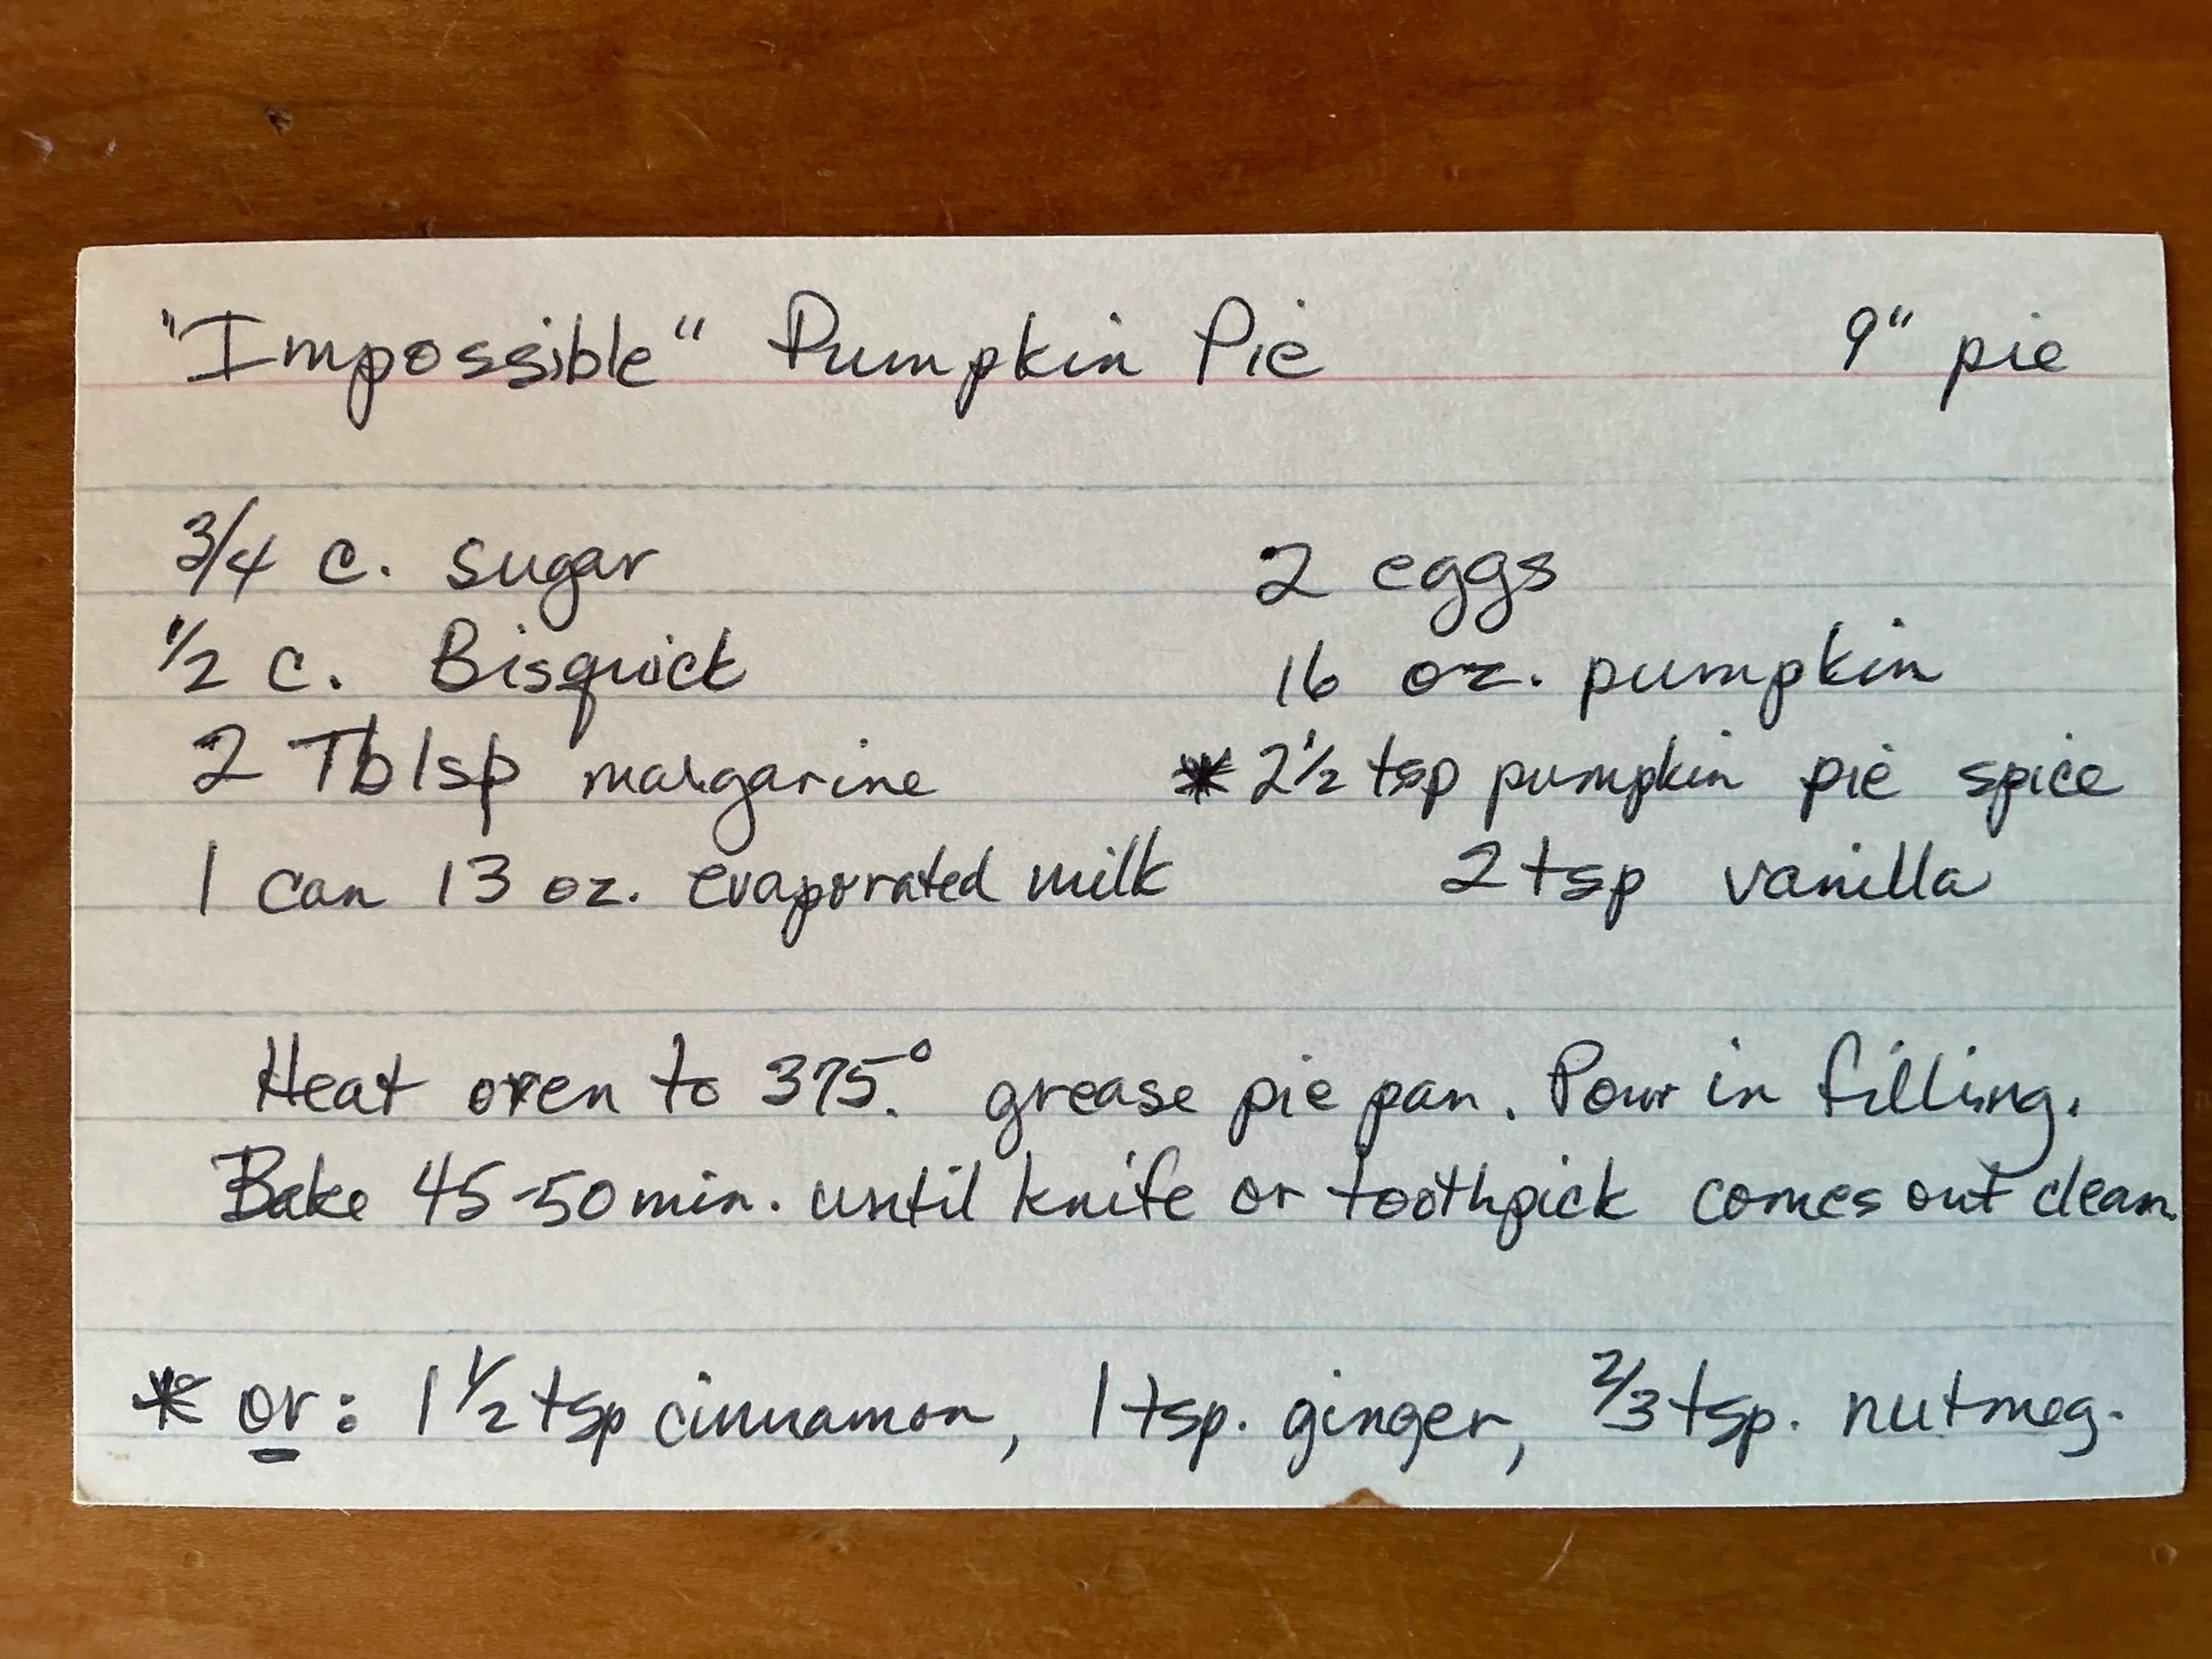 "Impossible" Pumpkin Pie 9" pie
3/4 c. sugar 2 eggs
1/2 c. Bisquick 16 oz. pumpkin
2 Tblsp margarine * 2 1/2 tsp pumpkin pie spice
1 can 13 oz. evaporated milk 2 tsp vanilla
Heat oven to 375°. grease pie pan. Pour in filling.
Bake 45-50 min. until knife or toothpick comes out clean.
* or: 1 1/2 tsp cinnamon, 1 tsp. ginger, 2/3 tsp. nutmeg.